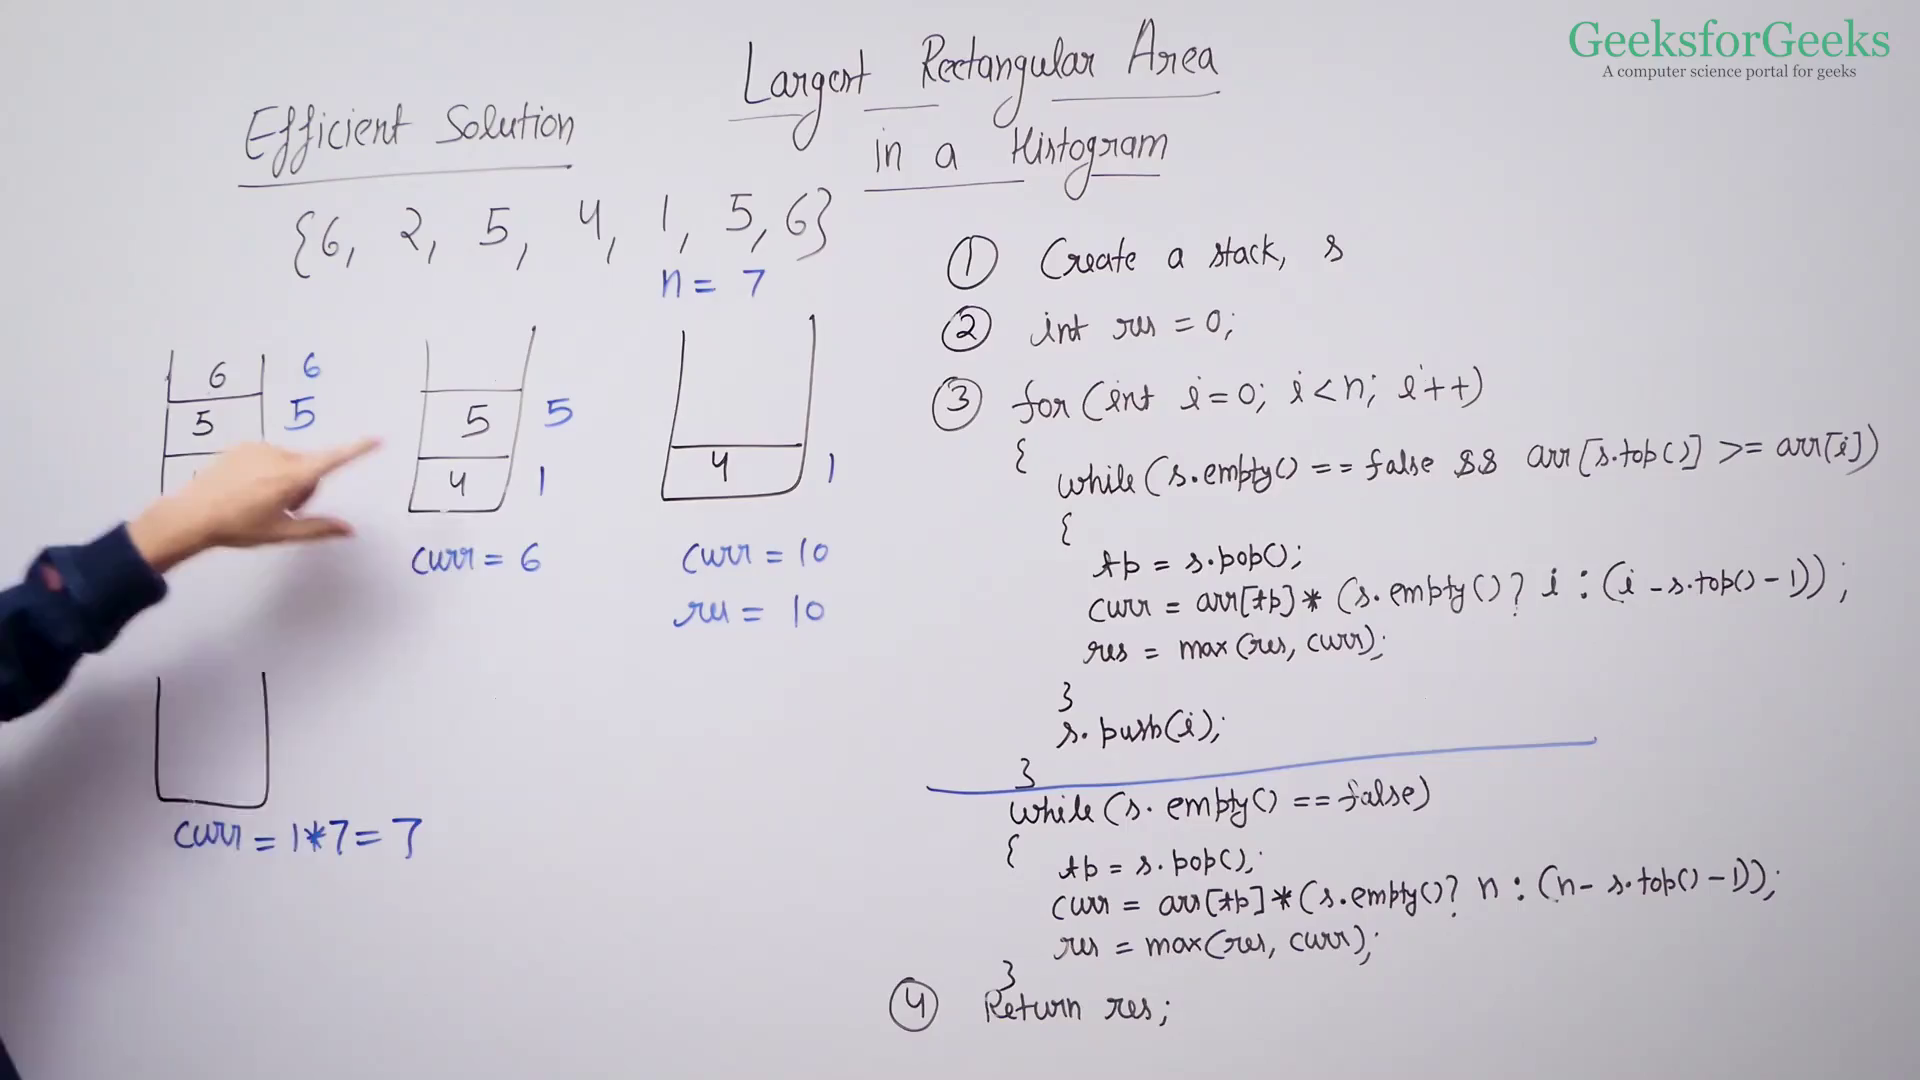 GeeksforGeeks
A computer science portal for geeks
Largest Rectangular Area
in a Histogram
Efficient Solution
{6, 2, 5, 4, 1, 5, 6}
n = 7
6 6
5 5
5 5
4 1
curr = 6
4 1
curr = 10
res = 10
curr = 1*7 = 7
① Create a stack, s
② int res = 0;
③ for (int i=0; i<n; i++)
{
while (s.empty() == false && arr[s.top()] >= arr[i])
{
tp = s.pop();
curr = arr[tp] * (s.empty() ? i : (i - s.top() - 1));
res = max(res, curr);
}
s.push(i);
}
while (s.empty() == false)
{
tp = s.pop();
curr = arr[tp] * (s.empty() ? n : (n - s.top() - 1));
res = max(res, curr);
}
④ Return res;